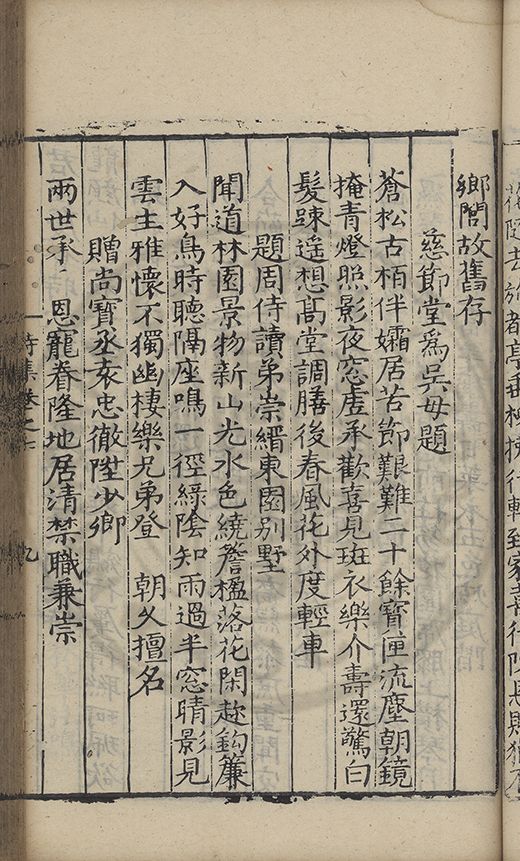 鄉閭故舊存
慈節堂爲吳母題
蒼松古栢伴孀居苦節艱難二十餘寶匣流塵朝鏡
掩青燈照影夜窓虛承歡喜見斑衣樂介壽還驚白
髮踈遥想髙堂調膳後春風花外度輕車
題周侍讀弟崇縉東園别墅
聞道林園景物新山光水色繞簷楹落花閑趂鈎簾
入好鳥時聽隔座鳴一徑綠陰知雨過半窓晴影見
雲生雅懷不獨幽棲樂兄弟登 朝久擅名
贈尚寶丞袁忠徹陞少卿
兩世承 恩寵眷隆地居清禁職兼崇
詩集卷之七 九